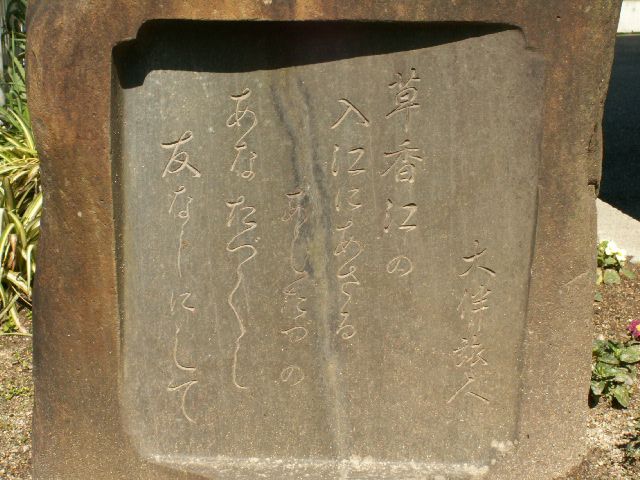 大伴旅人
草香江の
入江にあさる
あしたづの
あなたづたづし
友なしにして